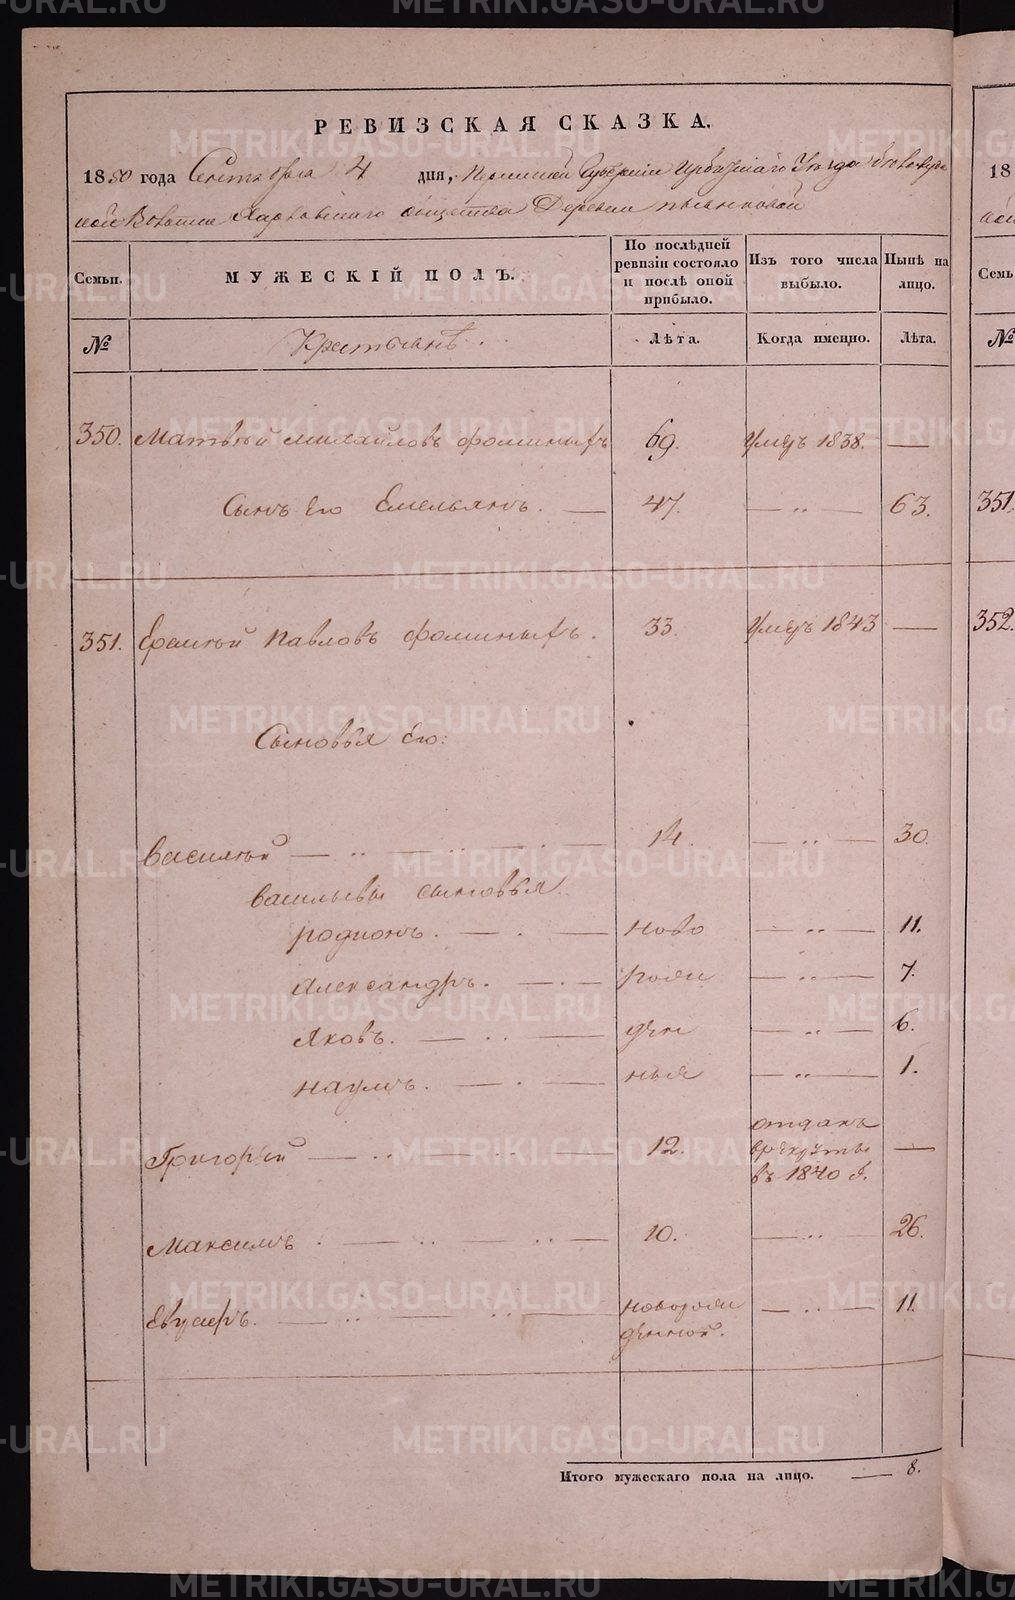 РЕВИЗСКАЯ СКАЗКА.
1850 года Сентября 4 дня, Пермской Губернии Ирбитскаго Уезда
ной Волости Харловскаго общества Деревни
Семьи. МУЖЕСКІЙ ПОЛЪ. По послѣдней ревизіи состояло и послѣ оной прибыло. Изъ того числа выбыло. Нынѣ на лицо.
№ Крестьянъ. Лѣта. Когда именно. Лѣта.
350. Матвѣй Михайловъ Фоминыхъ 69. Умеръ 1838. —
Сынъ Его Емельянъ. — 47. — „ — 63.
351. Еремѣй Павловъ Фоминыхъ. 33. Умеръ 1843 —
Сыновья Его:
Василѣй — 14. — „ — 30.
Васильевы сыновья
Родионъ. — ново — „ — 11.
Александръ. — рож — „ — 7.
Яковъ. — ден — „ — 6.
Наумъ. — ныя — „ — 1.
Григорѣй — 12. отданъ в рекруты въ 1840 г. —
Максимъ — 10. — „ — 26.
— новорожденной. — „ — 11.
Итого мужескаго пола на лицо. — 8.
18
351.
352.
Семь
№
METRIKI.GASO-URAL.RU